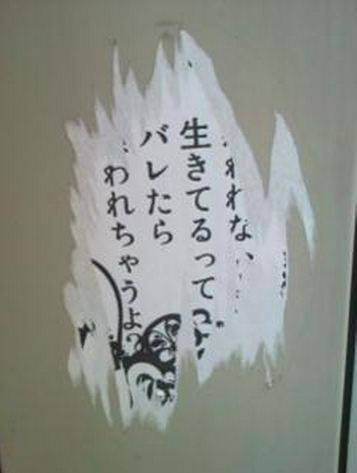 われな、
生きてるって
バレたら
われちゃうよ?